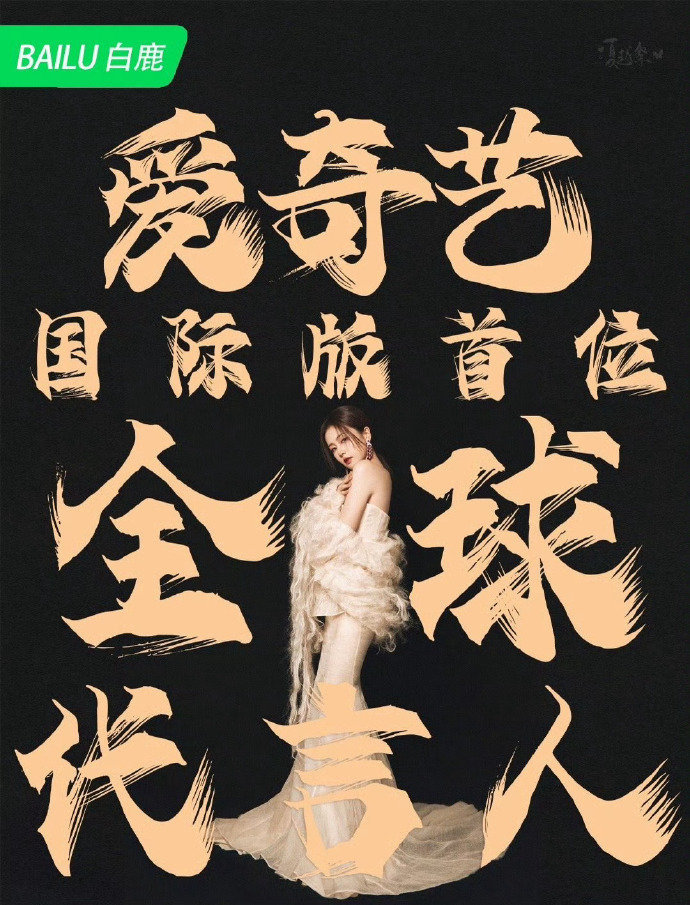 BAILU 白鹿
爱奇艺
国际版首位
全球
代言人